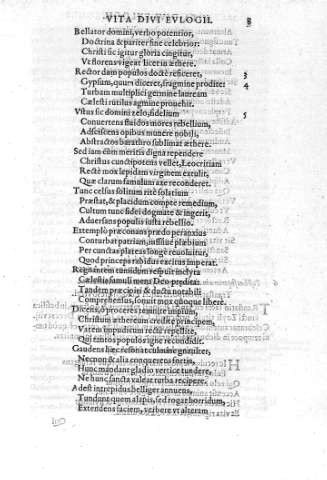 VITA DIVI EVLOGII. 8
Bellator domini, verbo potentior,
Doctrina & pariter fine celebrior:
Christi sic igitur gloria cingitur,
Vt florens vigeat liceat in æthere.
Rector dam populos doctè reficeret, 3
Gypsam, quum diceret, fragmine prodite: 4
Turbam multiplici germine lauream
Cælesti rutilus agmine prouehit.
Vitus sic domini zelo, fidelium 5
Conuertens fluidos mores rebellium,
Adsciscens opibus munere nobili,
Abstractos barathro sublimat æthere.
Sed iam cùm meritis digna rependere
Christus cunctipotens vellet, Leocritiam
Rectè mox lepidam virginem extulit,
Quæ clarum famulum axe reconderet.
Tunc celsus solitum ritè solatium
Præstat, & placidum compte remedium,
Cultum tunc fidei dogmate & ingerit,
Aduersans populis iusta rebellio.
Extemplò præconans prædo peranxius
Conturbat patriam, plæbium
Per cunctas plateas longè reuoluitur,
Quod princeps rabidus excitus imperat.
Regnantem tumidum respuit inclyta
Cælestis famuli mens Deo prædita:
Tandem præcipiti & ductu notabili
Comprehensus, iouit mox quoque libere.
Dicens, ò proceres temnite impium,
Christum æthereum credite principem,
Vatem impudicum rectè repellite,
Qui tintos populos igne recondidit.
Gaudens hæc resonat culmine gnauiter,
Necnon & alia concurrens fortis,
Hunc mandant gladio vertice tundere,
Ne hunc sancta valeat turba recipere.
Adest intrepidus belliger annuens,
Tundunt quem alapis, sed rogat horridum,
Extendens faciem, verbere vt alteram